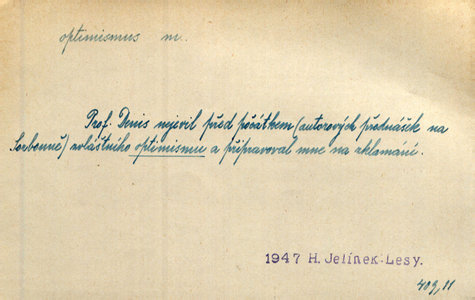 optimismus m.
Prof. Denis nejevil před počátkem (autorových přednášek na
Sorbonně) zvláštního optimismu a připravoval mne na zklamání.
1947 H. Jelínek: Lesy.
409,11